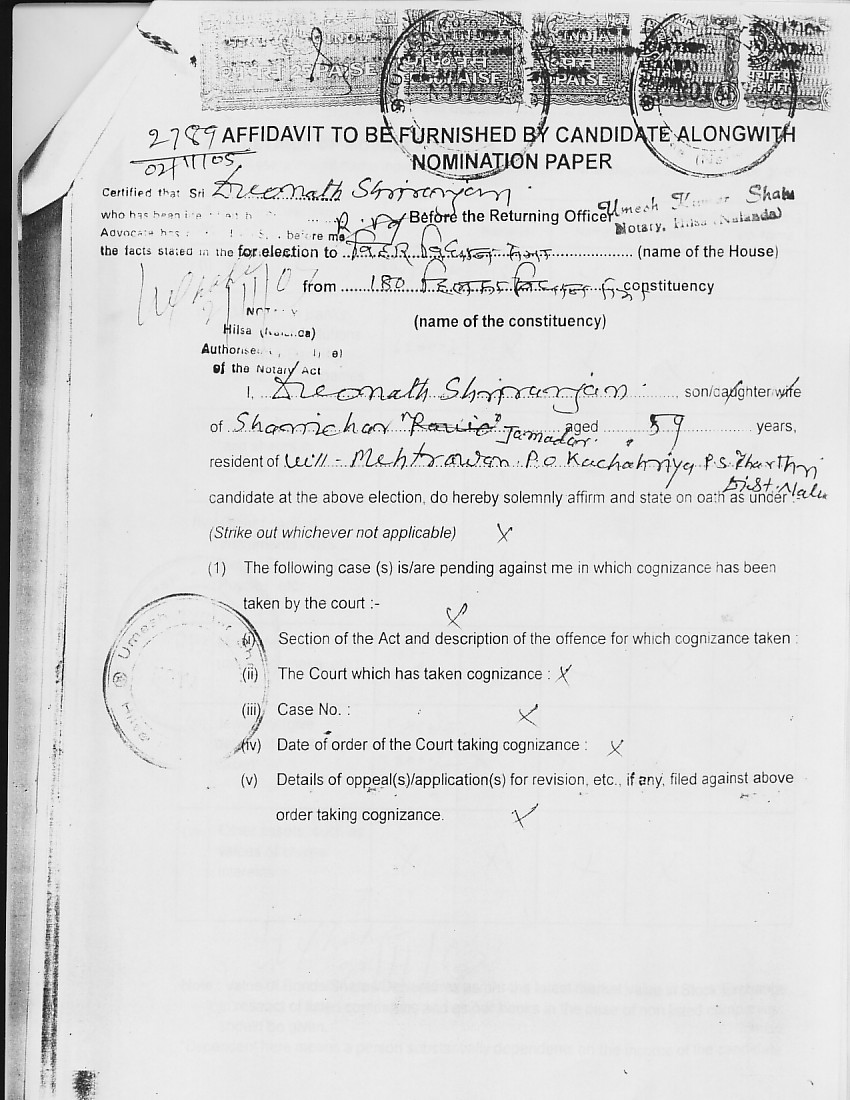 2789 AFFIDAVIT TO BE FURNISHED BY CANDIDATE ALONGWITH
02/11/05
NOMINATION PAPER
Certified that Sri Sreenath Shriranjan
who has been Before the Returning Officer Umesh Kumar Shah
Notary, Hilsa (Nalanda)
Advocate has before me
the facts stated in the for election to बिहार विधान सभा (name of the House)
from 180 विधान constituency
Hilsa
(name of the constituency)
Authorise
of the Notary Act
I, Sreenath Shriranjan, son/daughter/wife
of Shanichar Jamadar aged 59 years,
resident of Vill - Mehtrawan P.O Kachahriya P.S Tharthri
Dist. Nala
candidate at the above election, do hereby solemnly affirm and state on oath as under :-
(Strike out whichever not applicable) X
(1) The following case (s) is/are pending against me in which cognizance has been
taken by the court :- X
(i) Section of the Act and description of the offence for which cognizance taken :
(ii) The Court which has taken cognizance : X
(iii) Case No. : X
(iv) Date of order of the Court taking cognizance : X
(v) Details of oppeal(s)/application(s) for revision, etc., if any, filed against above
order taking cognizance. X